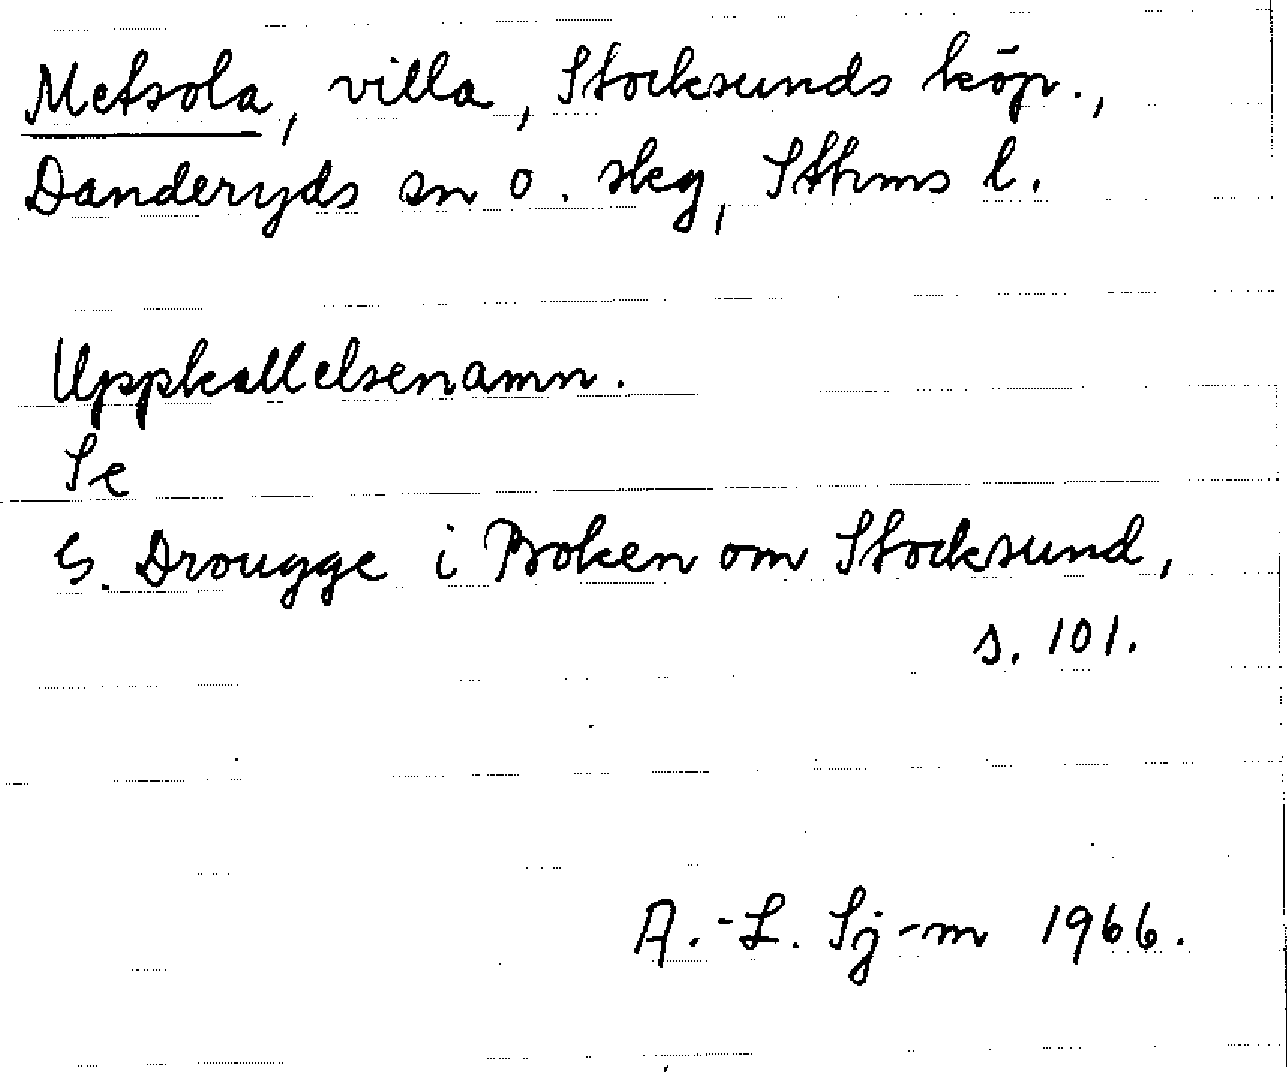 Metsola, villa, Stocksunds köp.,
Danderyds sn o. skg, Sthms l.
Uppkallelsenamn.
Se
G. Drougge i Boken om Stocksund,
s. 101.
A.-L. Sj-m 1966.